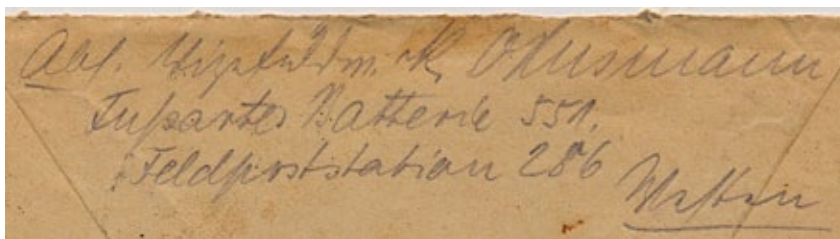 Abs. Vizefeldw. R. Ohlismann
Fußartl Batterie 551.
Feldpoststation 286
Westen